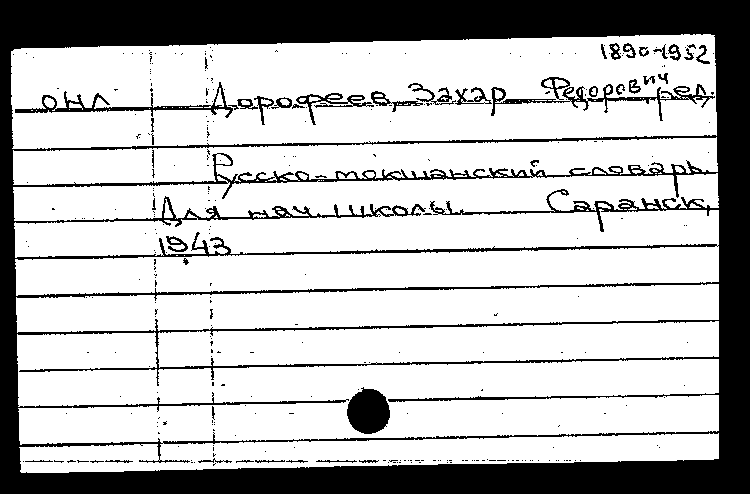 1890-1952
ОНЛ Дорофеев, Захар Федорович, ред.
Русско-мокшанский словарь.
Для нач. школы. Саранск,
1943